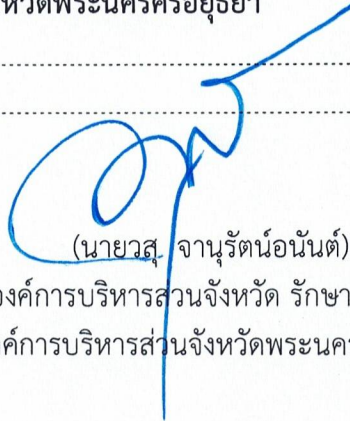 หวัดพระนครศรีอยุธยา
(นายวสุ จานุรัตน์อนันต์)
องค์การบริหารส่วนจังหวัด รักษา
ค์การบริหารส่วนจังหวัดพระนคร